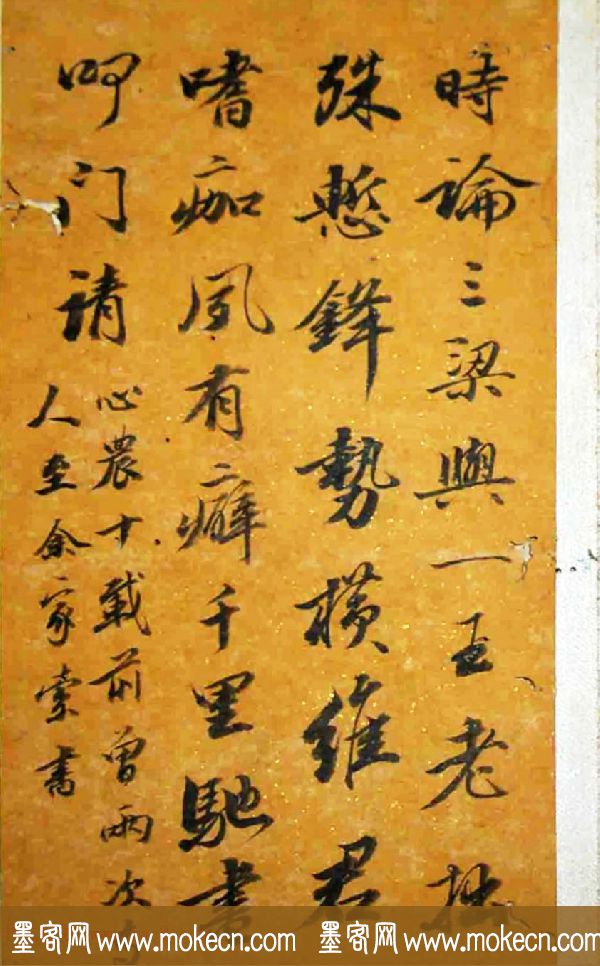 時論三梁與一王老拙
殊慙鋒勢橫維君
嗜痂夙有癖千里馳書
叩门请
心農十载前曾兩次
人至余家索書
墨客网 www.mokecn.com 墨客网 www.mokecn.com